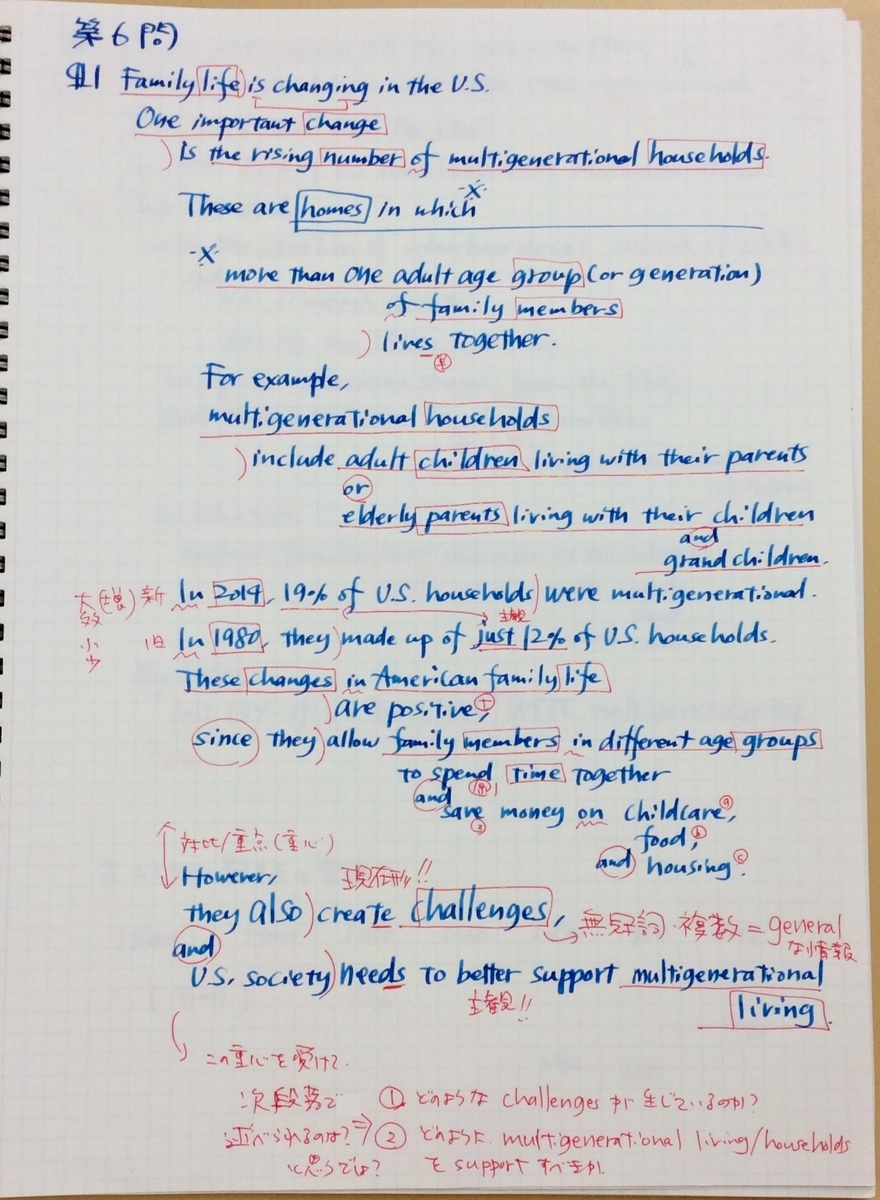 第6問
§1 Family life is changing in the U.S.
One important change
) is the rising number of multigenerational households.
These are homes in which -X-
-X- more than one adult age group (or generation)
of family members
) lives together.
単
For example,
multigenerational households
) include adult children living with their parents
or
elderly parents living with their children
and
grand children.
大 (増) 新 In 2019, 19% of U.S. households) were multigenerational.
数 主観
小 旧 In 1980, they) made up of just 12% of U.S. households.
少
These changes in American family life
) are positive, +
since they) allow family members in different age groups
to spend time together
and
save money on childcare, a
food, b
and housing. c
対比/重点(重心)
However, 現在形!!
they also) create challenges,
→ 無冠詞・複数 = general
and な情報
U.S. society) needs to better support multigenerational
主観!! living.
この重心を受けて、
次段落で ① どのような challenges が 生じているのか?
述べられるのは? ⇒ ② どのように multigenerational living/households
と思うのでは? を support すべきか